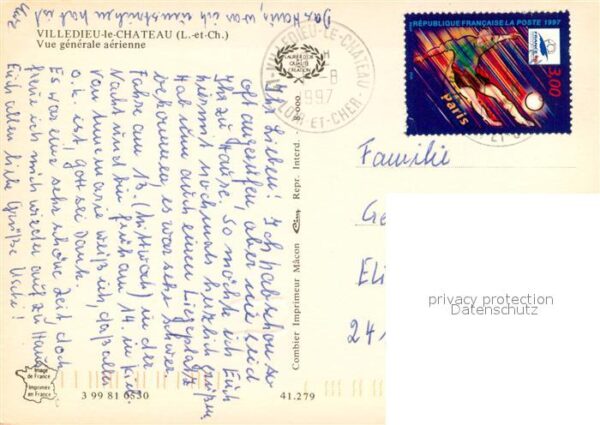 VILLEDIEU-le-CHATEAU (L.-et-Ch.)
Vue générale aérienne
Das Haus, was ich
hat ist
LAURÉAT DE LA
QUALITÉ
CRÉATION
VILLEDIEU-LE-CHATEAU
1997
LOIR-ET-CHER
RÉPUBLIQUE FRANÇAISE LA POSTE 1997
3,00
Paris
Ihr Lieben! Ich hab schon so
oft angerufen, aber nie seid
Ihr zu Hause. So möchte ich Euch
hiermit nochmals herzlich grüßen
Hab nun auch einen Liegeplatz
bekommen, es war sehr schwer
Fahre am 13. (Mittwoch) in der
Nacht und bin früh am 14. in
von Annemarie weiß ich, daß alles
o.k. ist! Gott sei Dank.
Es war eine sehr schöne Zeit doch
freue ich mich wieder auf zu Hause
Euch allen liebe Grüße Uschi!
Combier Imprimeur Mâcon
Cim
Repr. Interd.
Familie
Ge
Eli
241
privacy protection
Datenschutz
Image
de France
Imprimée
en France
3 99 81 0830
41.279